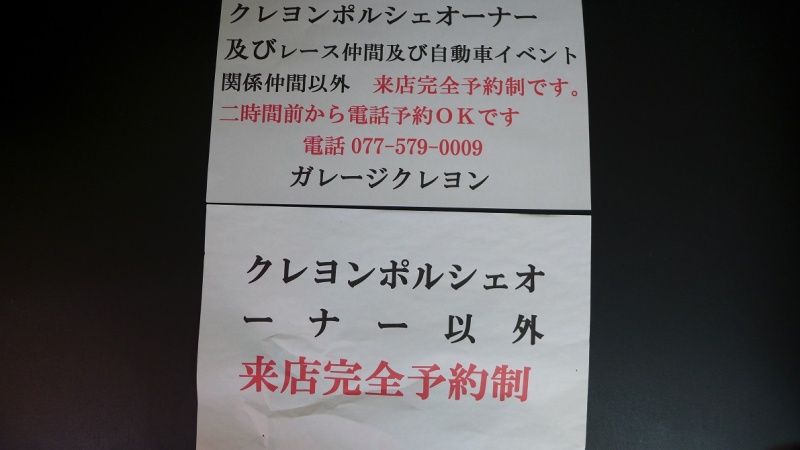 クレヨンポルシェオーナー
及びレース仲間及び自動車イベント
関係仲間以外　来店完全予約制です。
二時間前から電話予約OKです
電話 077-579-0009
ガレージクレヨン
クレヨンポルシェオ
ーナー以外
来店完全予約制